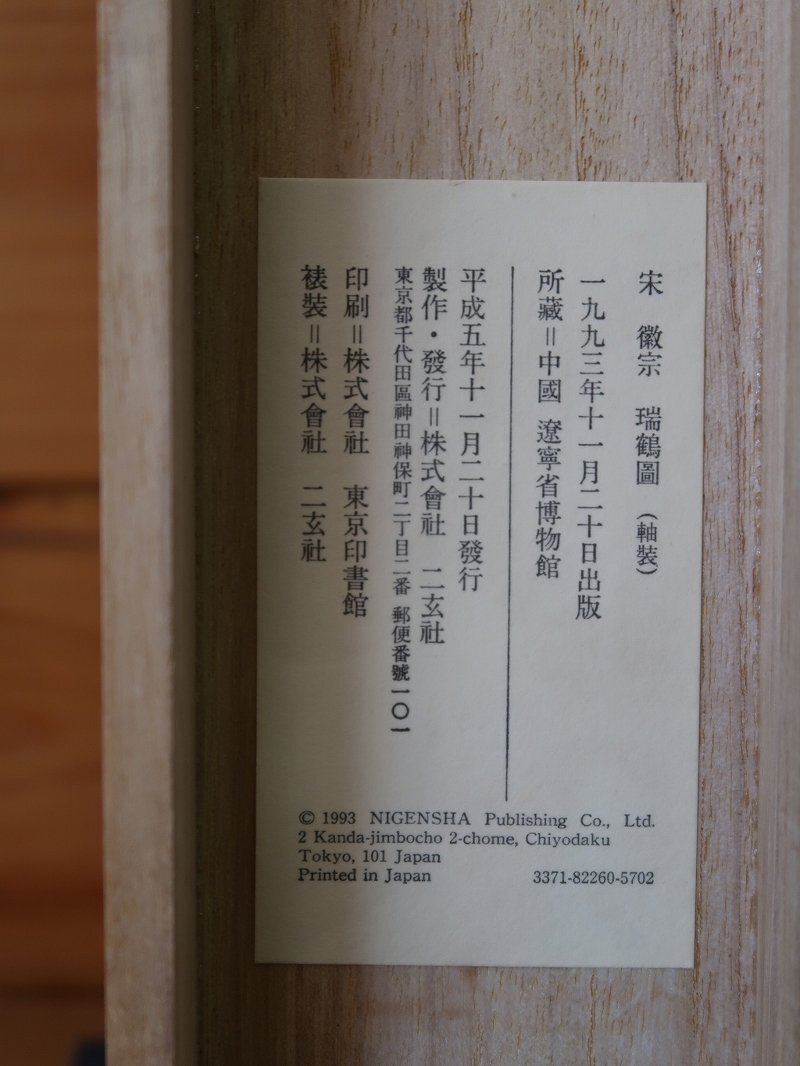 宋 徽宗 瑞鶴圖（軸裝）
一九九三年十一月二十日出版
所藏＝中國 遼寧省博物館
平成五年十一月二十日發行
製作・發行＝株式會社 二玄社
東京都千代田區神田神保町二丁目二番 郵便番號一〇一
印刷＝株式會社 東京印書館
裱裝＝株式會社 二玄社
© 1993 NIGENSHA Publishing Co., Ltd.
2 Kanda-jimbocho 2-chome, Chiyodaku
Tokyo, 101 Japan
Printed in Japan 3371-82260-5702